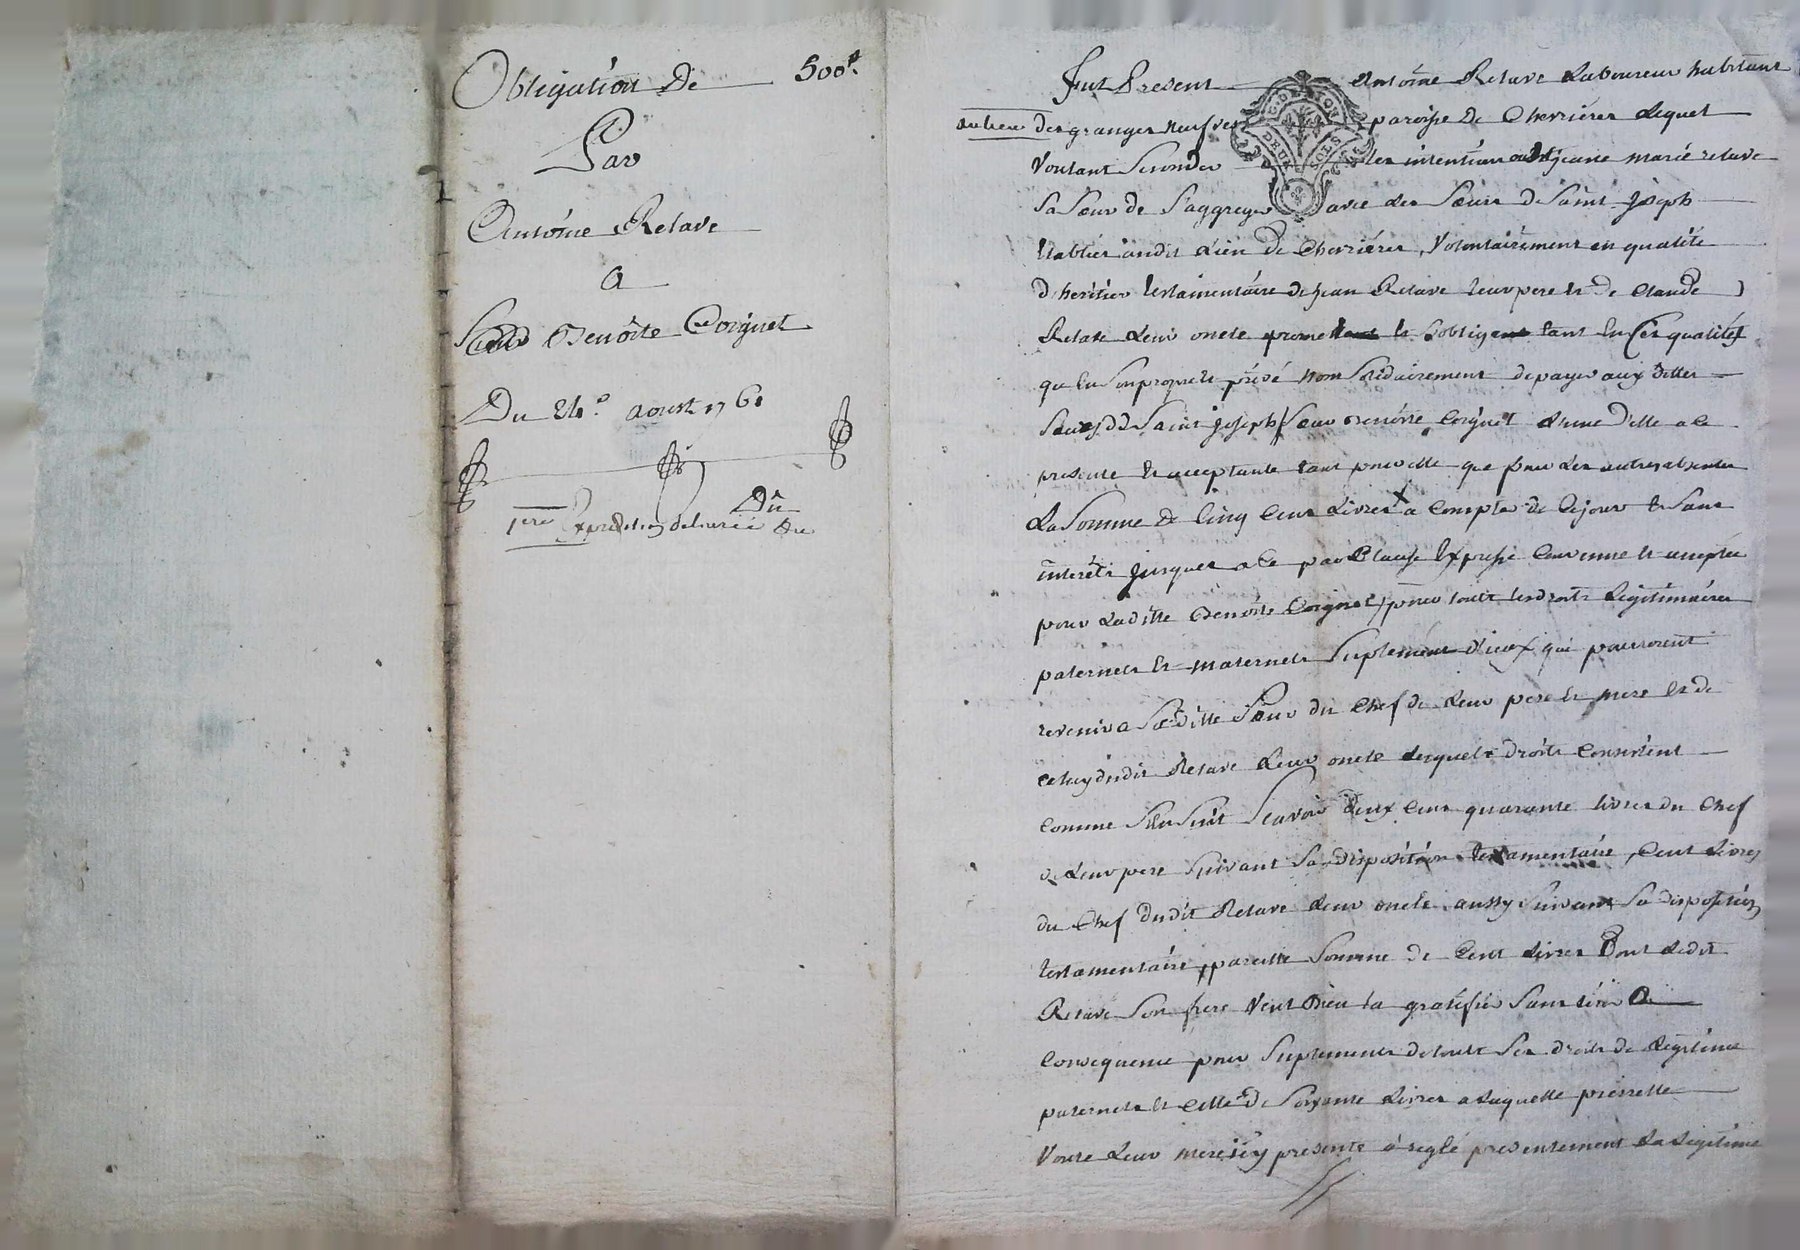 Obligation De 500 ₶.
Par
Antoine Retave
a
Sœur Benoite Coignet
Du 24.e aoust 1761
1ere Expedition delivrée Du
Du
Fut Present Antoine Retave Laboureur habitant
au lieu des granges neufves paroisse de Chevrieres Lequel
Voulant Seconder Les intentions de jeane marie retave
Sa Sœur de S'aggreger avec des Sœurs de Saint Joseph
Etablies audit Lieu de Chevrieres, Volontairement en qualité
d'heritier testamentaire de jean Retave leur pere et de Claude
Retave Leur oncle promet et s'oblige tant En Ces qualités
qu'En Son propre et privé nom Solidairement de payer aux dittes
Sœurs de Saint Joseph Sœur Benoite Coignet d'une d'elle a ce
presente et acceptante tant pour elle que pour Les autres absentes
La Somme de Cinq Cent Livres a Compte de Ce jour et Sans
interêts jusques a Ce par Clause Expresse Convenue et acceptée
pour Laditte Benoite Coignet, pour touts Les droits Legitimaires
paternels et maternels Suplement d'iceux qui pourroient
revenir a Saditte Sœur du Chef de Leur pere et mere et de
celuy dudit Retave Leur oncle Lesquels droits Consistent
comme S'En Suit Scavoir Deux Cent quarante livres du Chef
de Leur pere Suivant Sa disposition testamentaire, Cent Livres
du Chef dudit Retave Leur oncle aussy Suivant Sa disposition
testamentaire, pareille Somme de Cent Livres Dont Ledit
Retave Son frere Veut Bien La gratifier Sans tirer a
Consequence pour Suplements de touts Ses droits de Legitime
paternels et Celle de Soixante Livres a Laquelle pierrette
Voute Leur mere icy presente a reglé presentement La Legitime
DEUX SOLS